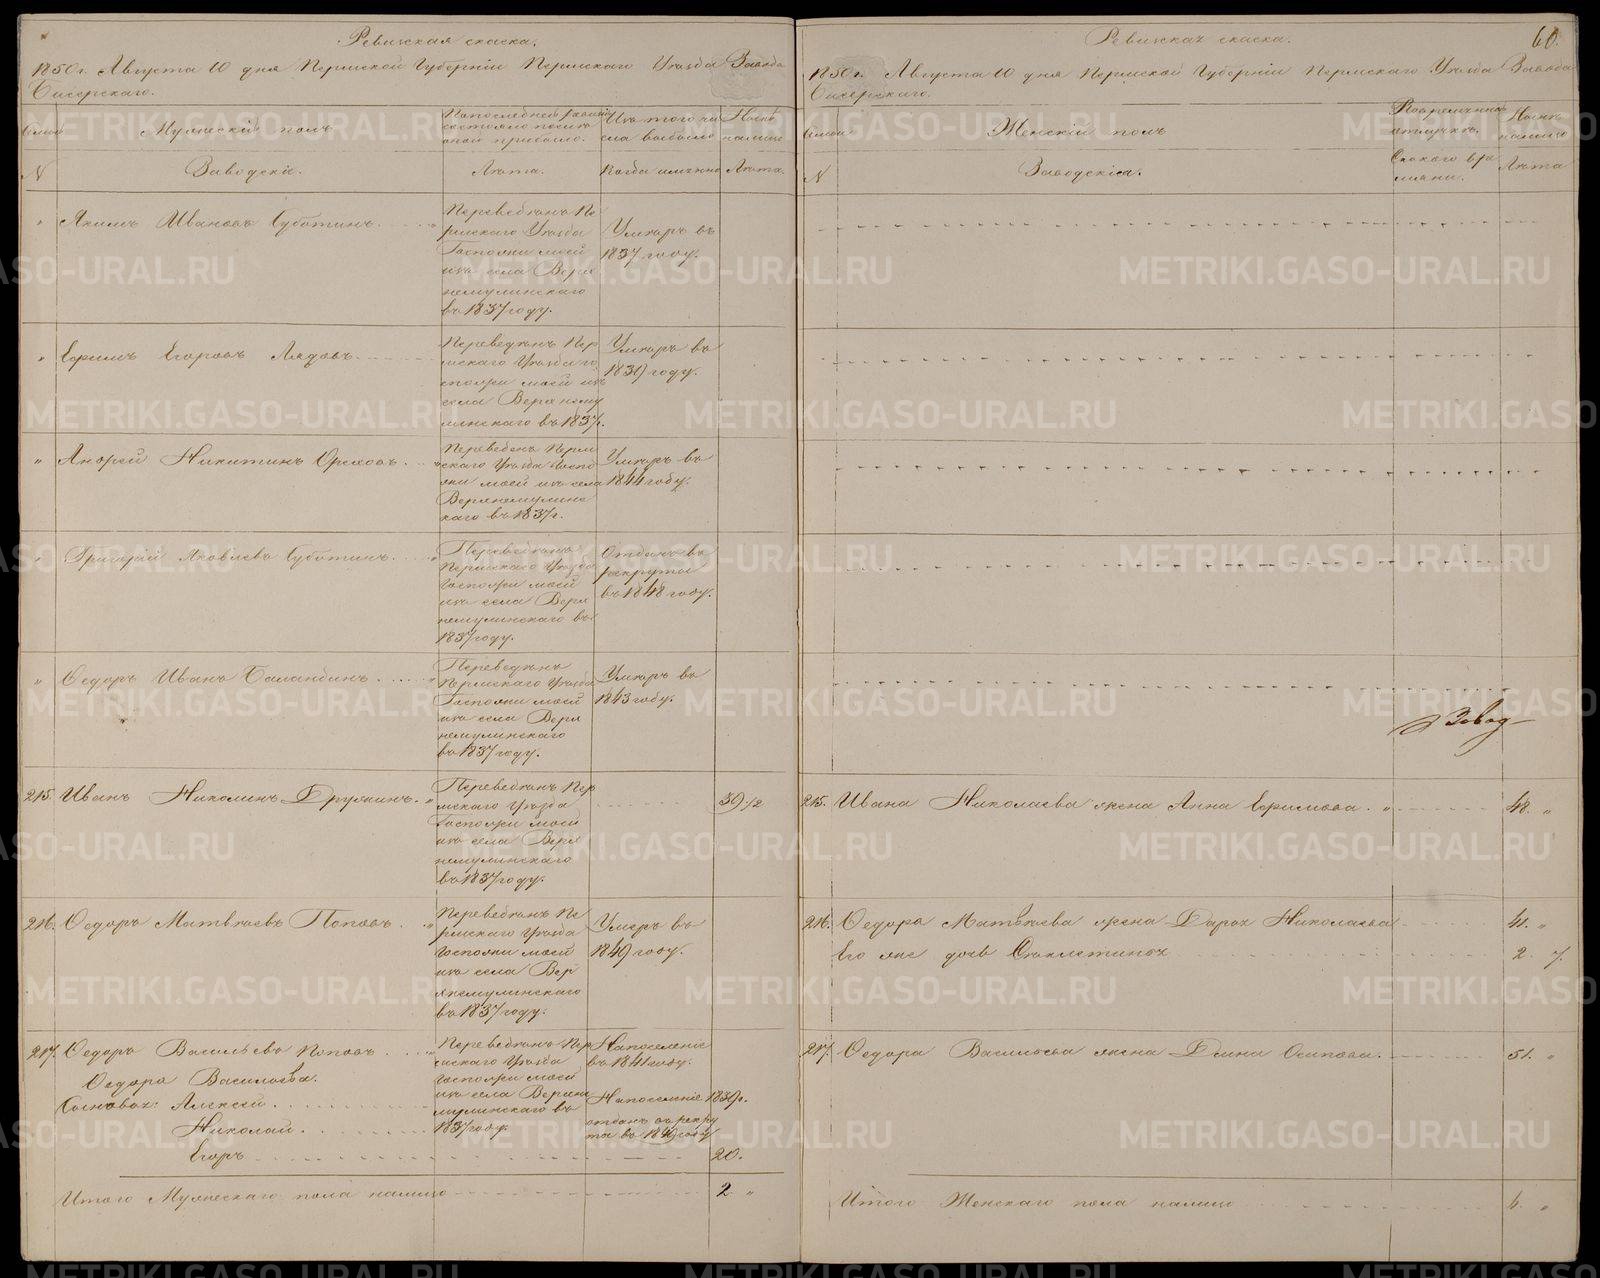 Ревижская скаска.
1850 г. Августа 10 дня Пермской Губернiи Пермскаго Уѣзда Завода
Бисерскаго.
Мужескiй полъ
По последней ревизiи
состояло после
оной прибыло.
Изъ того чи
сла выбыло
Нынѣ
налицо
N
Заводскiе.
Лѣта.
Когда имянно
Лѣта.
" Якимъ Ивановъ Субботинъ.
Переведѣнъ Пе
рмскаго Уѣзда
Госпожи моей
изъ села Верх
немулинскаго
въ 1837 году.
Умеръ въ
1837 году.
" Ефимъ Егоровъ Лядовъ
Переведѣнъ Пер
мскаго Уѣзда го
спожи моей изъ
села Верхнему
линскаго въ 1837 г.
Умеръ въ
1839 году.
" Андрей Никитинъ Ореховъ.
Переведенъ Перм
скаго Уѣзда Госпо
жи моей изъ села
Верхнемулинс
каго въ 1837 г.
Умеръ въ
1844 году.
" Григорiй Яковлевъ Субботинъ.
Переведѣнъ
Пермскаго Уѣзда
Госпожи моей
изъ села Верх
немулинскаго въ
1837 году.
Отданъ въ
рекруты
въ 1848 году.
" Федоръ Иванъ Баландинъ.
Переведѣнъ
Пермскаго Уѣзда
Госпожи моей
изъ села Верх
немулинскаго
въ 1837 году.
Умеръ въ
1843 году.
215. Иванъ Николинъ Дружинъ.
Переведѣнъ Пер
мскаго Уѣзда
Госпожи моей
изъ села Верх
немулинскаго
въ 1837 году.
39 1/2
216. Федоръ Матвѣевъ Поповъ.
Переведѣнъ Пе
рмскаго Уѣзда
Госпожи моей
изъ села Вер
хнемулинскаго
въ 1837 году.
Умеръ въ
1849 году.
217. Федоръ Васильевъ Поповъ.
Федора Васильева.
Сыновья: Алексей.
Николай.
Егоръ
Переведѣнъ Пер
мскаго Уѣзда
Госпожи моей
изъ села Верхне
мулинскаго въ
1837 году.
На поселенiе
въ 1841 году.
На поселенiе 1839 г.
отданъ въ рекру
та въ 1849 году
20.
Итого Мужескаго пола налицо 2 "
60.
Ревижская скаска.
1850 г. Августа 10 дня Пермской Губернiи Пермскаго Уѣзда Завода
Бисерскаго.
Женскiй полъ
Во временной
отлучкѣ.
Нынѣ
налицо
N
Заводскiя.
Съ какого вре
мяни.
Лѣта
Завод
215. Ивана Николаева жена Анна Ефимова. " 48. "
216. Федора Матвѣева жена Дарья Николаева 41. "
Его же дочь 2.
217. Федора Васильева жена Осипова. 51. "
Итого Женскаго пола налицо 6. "
METRIKI.GASO-URAL.RU